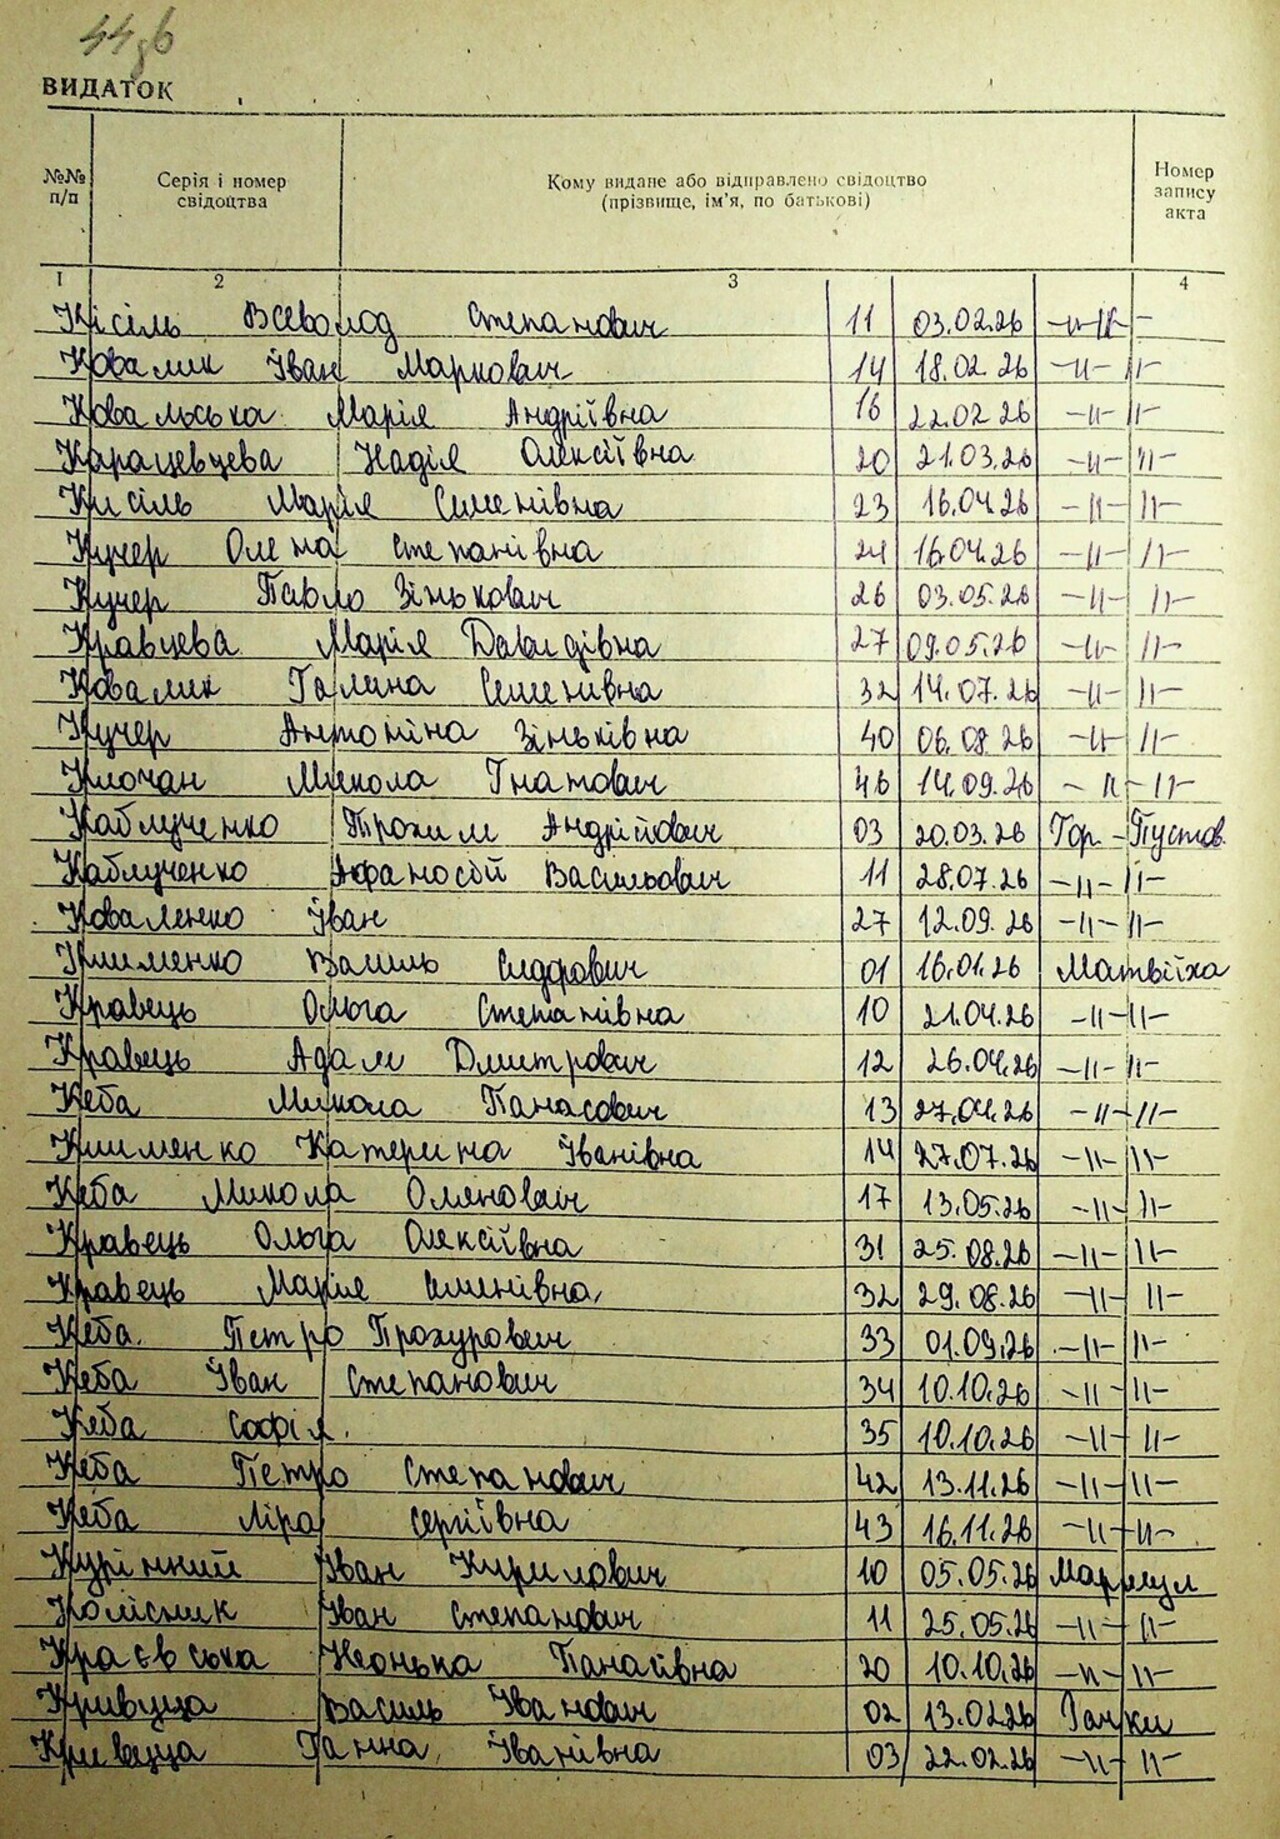 44зв
ВИДАТОК
№№ п/п Серія і номер свідоцтва Кому видане або відправлено свідоцтво (прізвище, ім'я, по батькові) Номер запису акта
1 2 3 4
Кісіль Всеволод Степанович 11 03.02.26 -"-"-
Ковалик Іван Маркович 14 18.02.26 -"- "-
Ковальська Марія Андріївна 16 22.02.26 -"- "-
Карацевцева Надія Олексіївна 20 21.03.26 -"- "-
Кисіль Марія Семенівна 23 16.04.26 -"- "-
Кучер Олена Степанівна 24 16.04.26 -"- "-
Кучер Павло Зінькович 26 03.05.26 -"- "-
Кравцева Марія Давидівна 27 09.05.26 -"- "-
Ковалик Галина Семенівна 32 14.07.26 -"- "-
Кучер Антоніна Зіньківна 40 06.08.26 -"- "-
Клочан Микола Гнатович 46 14.09.26 -"-"-
Каблученко Трохим Андрійович 03 20.03.26 Гор.-Пустов.
Каблученко Афанасій Васильович 11 28.07.26 -"- "-
Коваленко Іван 27 12.09.26 -"- "-
Клименко Василь Сидрович 01 16.01.26 Матвіїха
Кравець Ольга Степанівна 10 21.04.26 -"-"-
Кравець Адам Дмитрович 12 26.04.26 -"- "-
Кеба Микола Панасович 13 27.04.26 -"-"-
Клименко Катерина Іванівна 14 27.07.26 -"- "-
Кеба Микола Олянович 17 13.05.26 -"- "-
Кравець Ольга Олексіївна 31 25.08.26 -"- "-
Кравець Марія Семенівна 32 29.08.26 -"- "-
Кеба. Петро Прохурович 33 01.09.26 -"- "-
Кеба Іван Степанович 34 10.10.26 -"- "-
Кеба Софія. 35 10.10.26 -"- "-
Кеба Петро Степанович 42 13.11.26 -"- "-
Кеба Ліра Сергіївна 43 16.11.26 -"-"-
Курінний Іван Кирилович 10 05.05.26
Колісник Іван Степанович 11 25.05.26 -"- "-
Краєвська Неонька Панасівна 20 10.10.26 -"- "-
Кривуца Василь Іванович 02 13.02.26 Гайки
Кривуца Ганна Іванівна 03 22.02.26 -"- "-